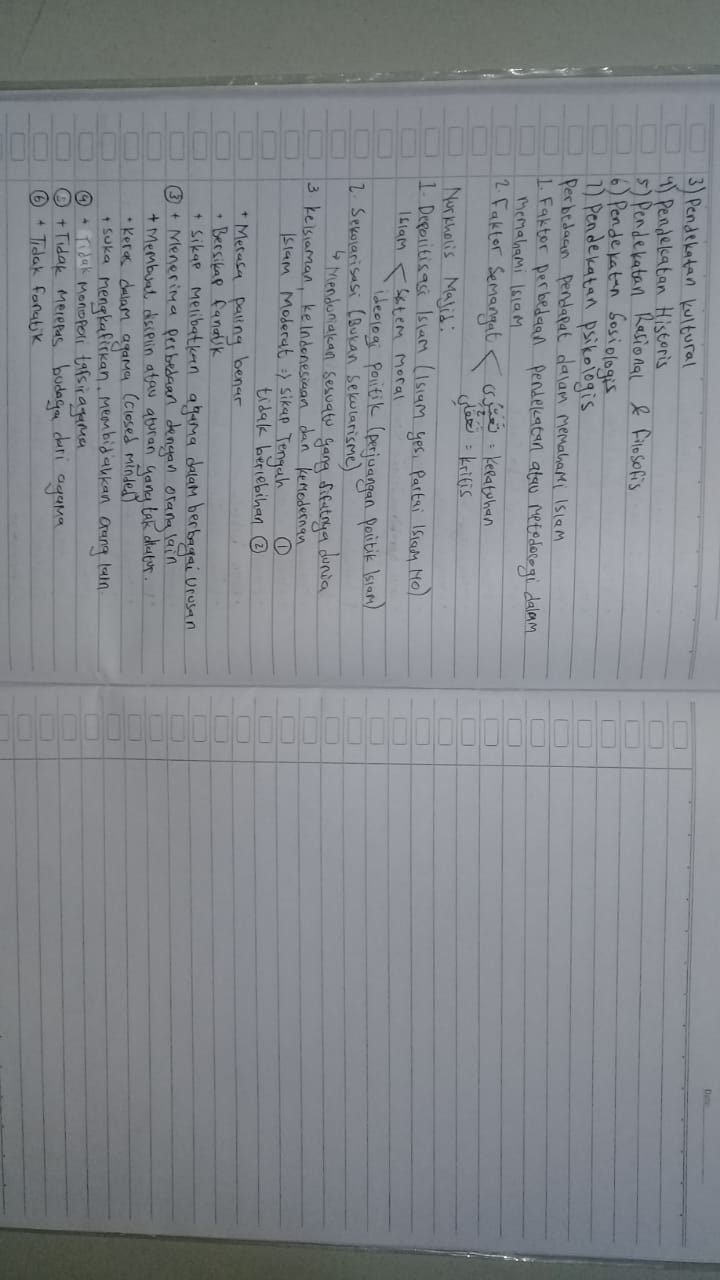 3) Pendekatan kultural
4) Pendekatan Historis
5) Pendekatan Rasional & Filosofis
6) Pendekatan Sosiologis
7) Pendekatan psikologis
Perbedaan pendapat dalam memahami Islam
1. Faktor perbedaan pendekatan atau metodologi dalam
memahami Islam
2. Faktor Semangat < = Kepatuhan
= kritis
Nurkholis Majid:
1. Depolitisasi Islam (Islam yes, Partai Islam No)
Islam < Sistem moral
ideologi politik (perjuangan politik Islam)
2. Sekularisasi (Bukan sekularisme)
↳ Mendunakan sesuatu yang sifatnya dunia
3 keislaman, keindonesiaan dan kemodernan
Islam Moderat => sikap Tengah ①
tidak berlebihan ②
+ Merasa paling benar
+ Bersikap fanatik
+ Sikap melibatkan agama dalam berbagai urusan
③ + Menerima perbedaan dengan orang lain
+ Membuat disiplin atau aturan yang tak diatur.
• keras dalam agama (closed minded)
+ suka mengkafirkan, membid'ahkan orang lain.
④ + Tidak monopoli tafsir agama
+ Tidak melepas budaya dari agama
⑥ + Tidak fanatik
Date: